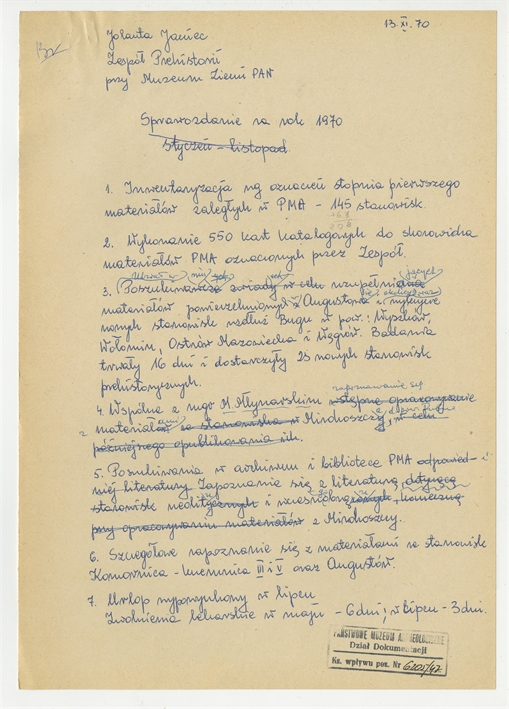 13 XI. 70
Jolanta Janiec
Zespół Prehistorii
przy Muzeum Ziemi PAN
Sprawozdanie za rok 1970
styczeń - listopad
1. Inwentaryzacja wg oznaczeń stopnia pierwszego
materiałów zaległych w PMA - 145 stanowisk.
2. Wykonanie 550 kart katalogowych do skorowidza
materiałów PMA oznaczonych przez Zespół.
3. Poszukiwawcze zwiady w celu uzupełnienia
materiałów powierzchniowych z Augustowa
nowych stanowisk wzdłuż Bugu w pow.: Wyszków,
Wołomin, Ostrów Mazowiecka i Węgrów. Badania
trwały 16 dni i dostarczyły 28 nowych stanowisk
prehistorycznych.
zapoznawanie się
4. Wspólne z mgr M. Młynarskim wstępne opracowanie
materiałów ze stanowiska w Mirohoszczy, w celu
późniejszego opublikowania ich.
5. Poszukiwania w archiwum i bibliotece PMA odpowied-
niej literatury Zapoznanie się z literaturą dotyczącą
stanowisk neolitycznych i wczesnobrązowych, konieczną
przy opracowywaniu materiałów z Mirohoszczy.
6. Szczegółowe zapoznanie się z materiałami ze stanowisk
Komornica - krzemienica III i V oraz Augustów.
7. Urlop wypoczynkowy w lipcu
Zwolnienia lekarskie w maju - 6 dni; w lipcu - 3 dni.
PAŃSTWOWE MUZEUM ARCHEOLOGICZNE
Dział Dokumentacji
Kz. wpływu poz. Nr